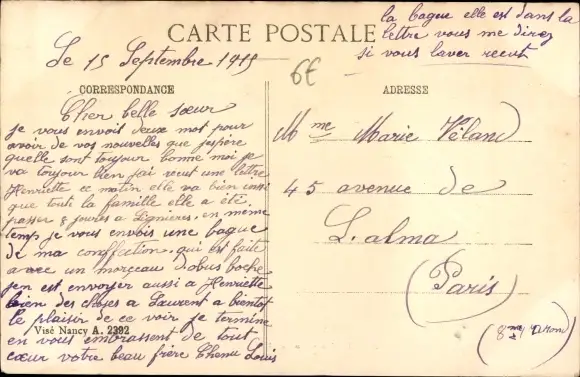 CARTE POSTALE
la bague elle est dans la
lettre vous me direz
si vous laver recut
Le 15 Septembre 1915
6€
CORRESPONDANCE
Cher belle sœur
je vous envoit deux mot pour
avoir de vos nouvelles que j'espère
quelle sont toujour bonne moi je
va toujour bien j'ai recut une lettre
Henriette ce matin elle va bien insi
que tout la famille elle a été
passer 8 joures a Lignières. en même
temp je vous envois une bague
de ma conffation. qui est faite
avec un morceau d'obus boche
jen est envoyer aussi a Henriette
bien des choses a Laurent a bientot
le plaisir de ce voir je termine
en vous embrassent de tout
cœur votre beau frère Chenu Louis
Visé Nancy A. 2392
ADRESSE
Mme Marie
45 avenue de
L'alma
(Paris)
(8me